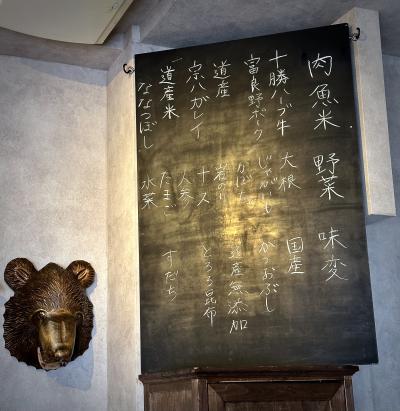 肉魚米
十勝ハーブ牛
富良野ポーク
道産
宗八ガレイ
道産米
ななつぼし
野菜
大根
じゃがいも
かぼちゃ
岩のり
ナス
人参
たまご
水菜
味変
国産
かつおぶし
道産無添加
とろろ昆布
すだち